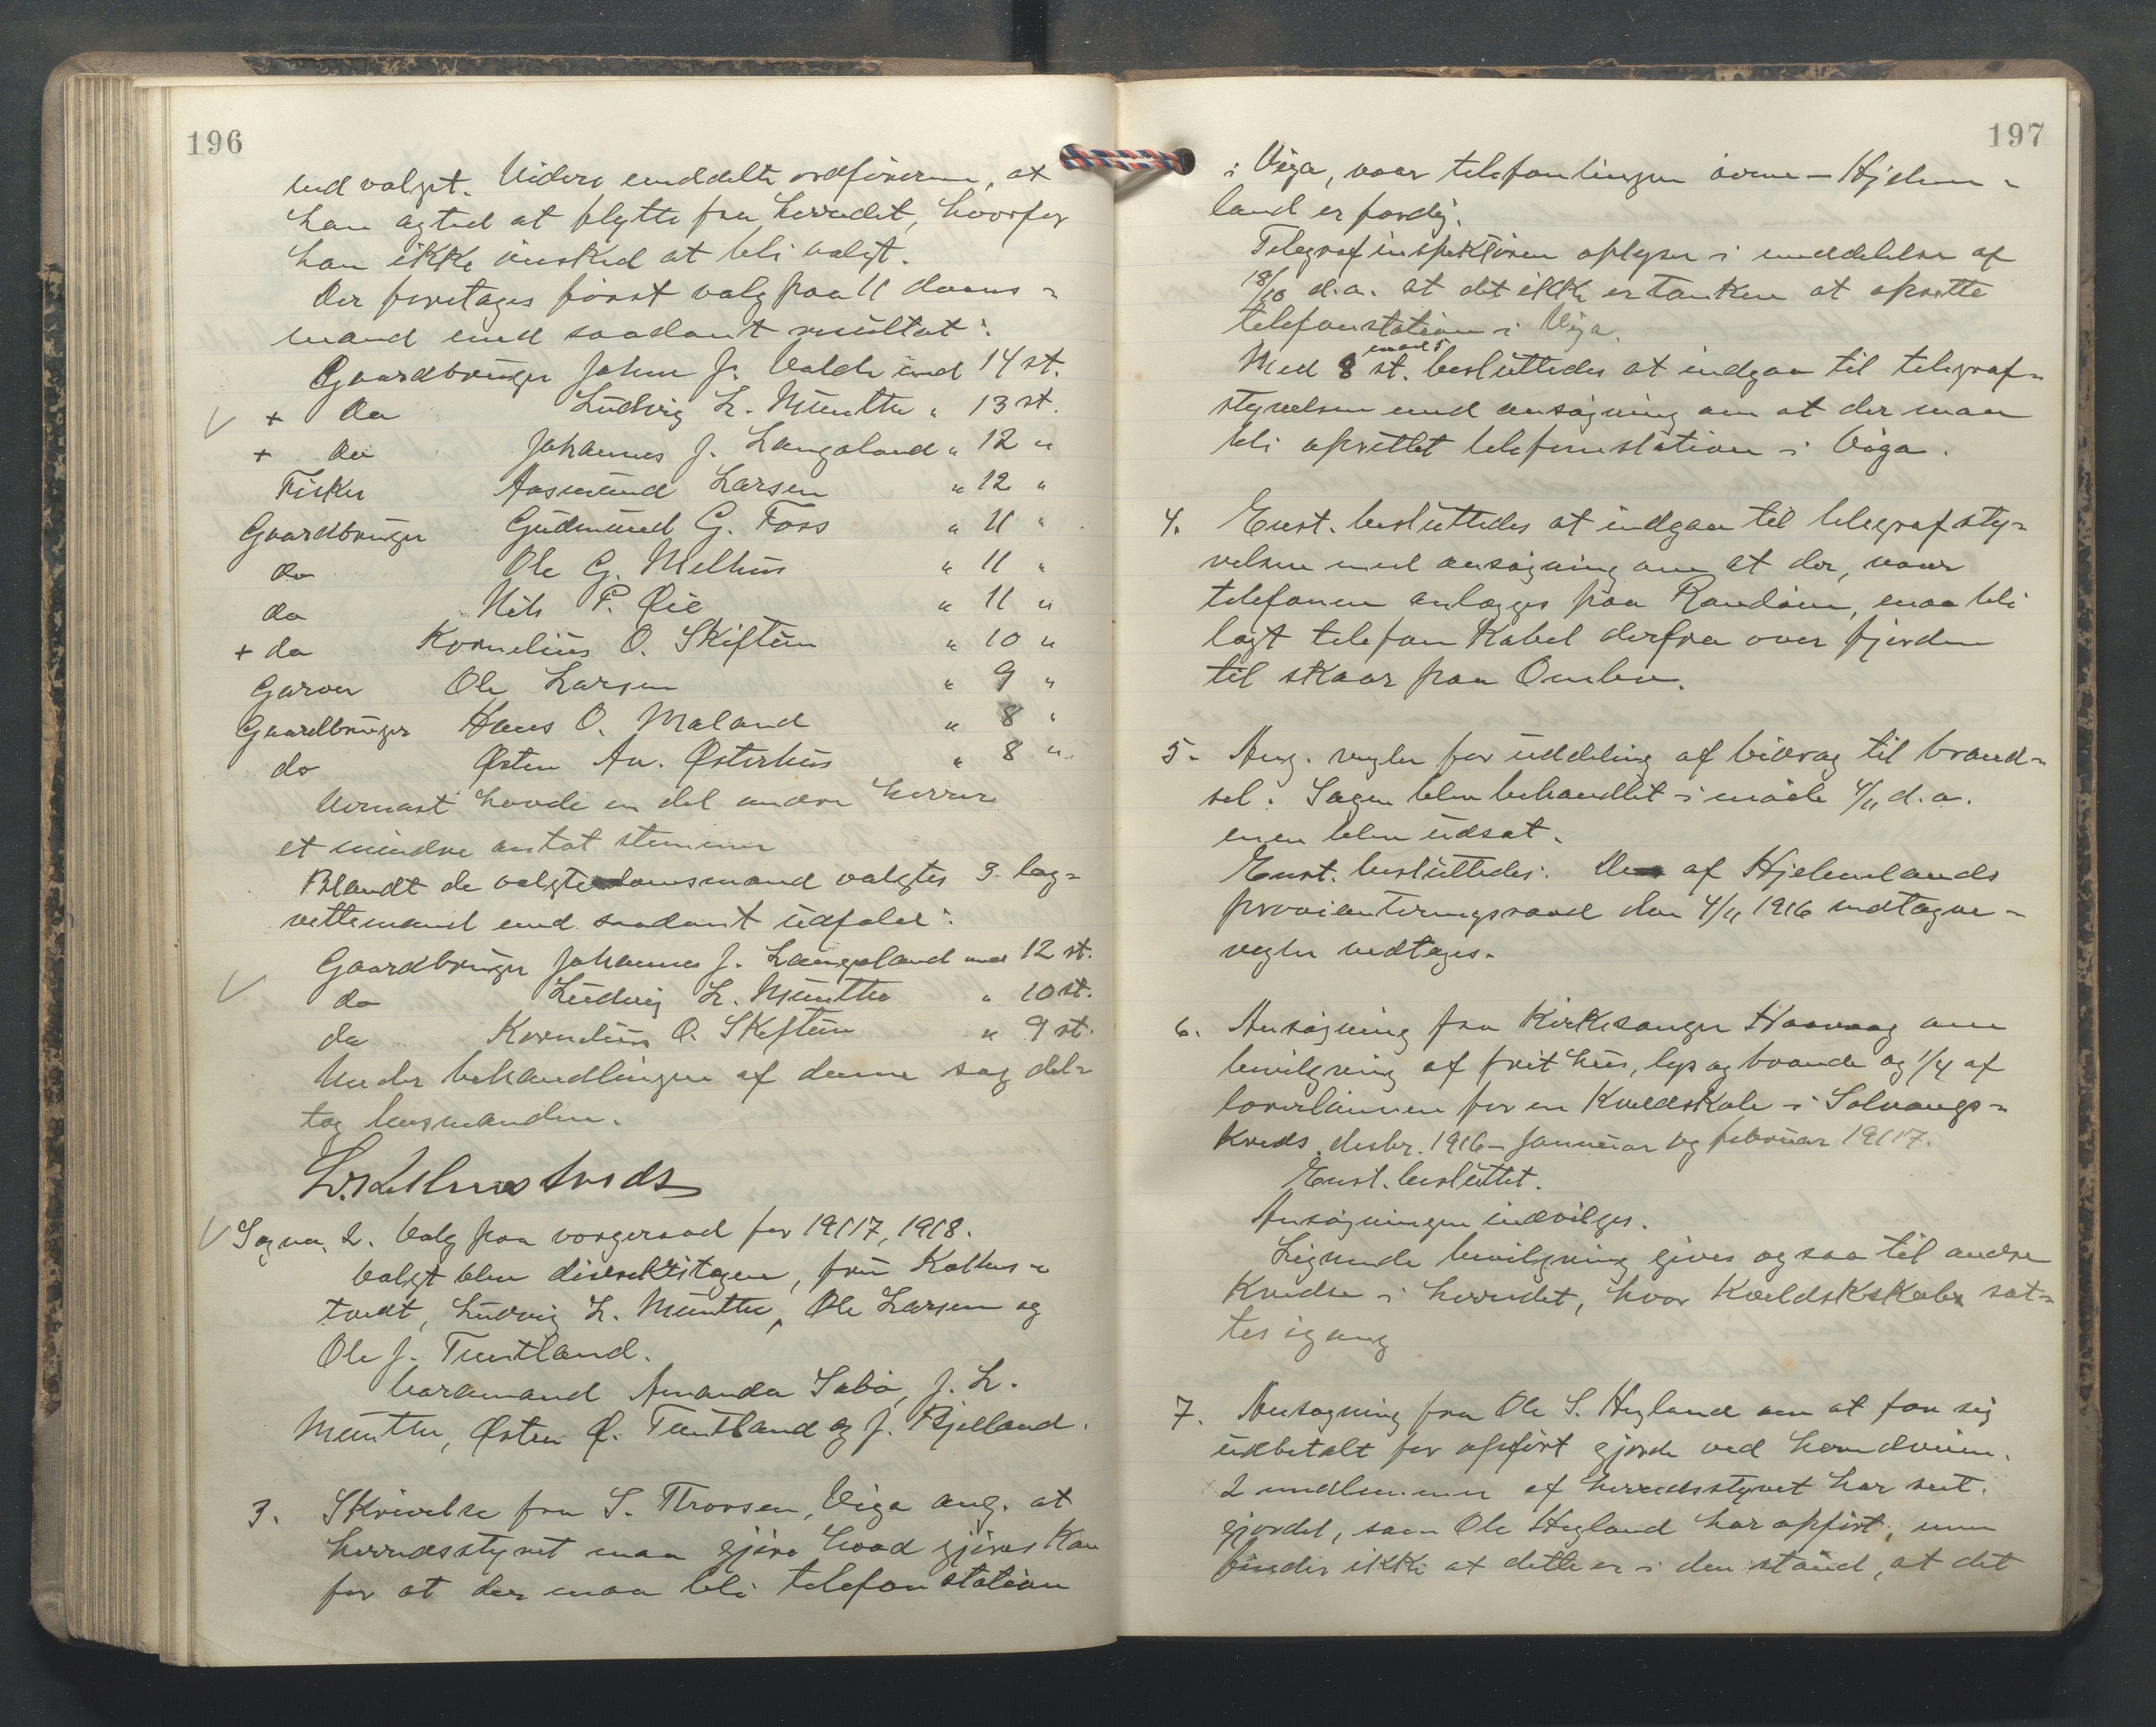 196
ved valget. Videre meddelte ordføreren, at
han agted at flytte fra herredet, hvorfor
han ikke ønsked at bli valgt.
Der foretages først valg paa 11 doms-
mænd med saadant resultat:
Gaardbruger John J. Valde med 14 st.
+ do Ludvig L. Münthe " 13 st.
+ do Johannes J. Langeland " 12 "
Fisker Aasmund Larsen " 12 "
Gaardbruger Gudmund G. Foss " 11 "
do Ole G. Melhus " 11 "
do Nils P. Øie " 11 "
+ do Kornelius O. Skiftun " 10 "
Garver Ole Larsen " 9 "
Gaardbruger Hans O. Maland " 8 "
do Østen An. Østerhus " 8 "
Dernæst havde en del andre herrer
et mindre antal stemmer
Blandt de valgte domsmænd valgtes 3 lag-
rettemænd med saadant udfald:
Gaardbruger Johannes J. Langeland med 12 st.
do Ludvig L. Münthe " 10 st.
do Kornelius O. Skiftun " 9 st.
Under behandlingen af denne sag del-
tog lensmanden.
Sag no. 2. Valg paa vergeraad for 1917, 1918.
Valgt blev distriktslægen, fru Koltvedt-
tvedt, Ludvig L. Münthe, Ole Larsen og
Ole J. Tuntland.
Varamænd Amanda Sabø, J. L.
Münthe, Østen Ø. Tuntland og J. Bjelland.
3. Skrivelse fra S. Thorsen, Viga ang. at
herredsstyret maa gjøre hvad gjøres kan
for at der maa bli telefonstation
197
i Viga, naar telefonlinjen - Hjelme-
land er færdig.
Telegrafinspektøren oplyser i meddelelse af
18/10 d.a. at det ikke er tanken at oprette
telefonstation i Viga.
Med 8 mod 5 st. besluttedes at indgaa til telegraf-
styrelsen med ansøgning om at der maa
bli oprettet telefonstation i Viga.
4. Enst. besluttedes at indgaa til telegrafsty-
relsen med ansøgning om at der, naar
telefonen anlægges paa Randøen, maa bli
lagt telefonkabel derfra over fjorden
til Skaar paa Ombo.
5. Ang. regler for uddeling af bidrag til brænd-
sel. Sagen blev behandlet i møde 4/11 d.a.
men blev udsat.
Enst. besluttedes: De af Hjelmelands
provianteringsraad den 4/11 1916 vedtagne
regler vedtages.
6. Ansøgning fra kirkesanger Haavaag om
bevilgning af frit hus, lys og brænde og 1/4 af
lærerlønnen for en kveldskole i Solvangs-
kreds desbr. 1916 - januar og februar 1917.
Enst. besluttet.
Ansøgningen indvilges.
Lignende bevilgning gives ogsaa til andre
kredse i herredet, hvor kveldskole sæt-
tes igang
7. Ansøgning fra Ole S. Hegland om at faa sig
udbetalt for opført gjerde ved hovedveien.
2 medlemmer af herredsstyret har set
gjerdet, som Ole Hegland har opført, men
finder ikke at dette er i den stand, at det